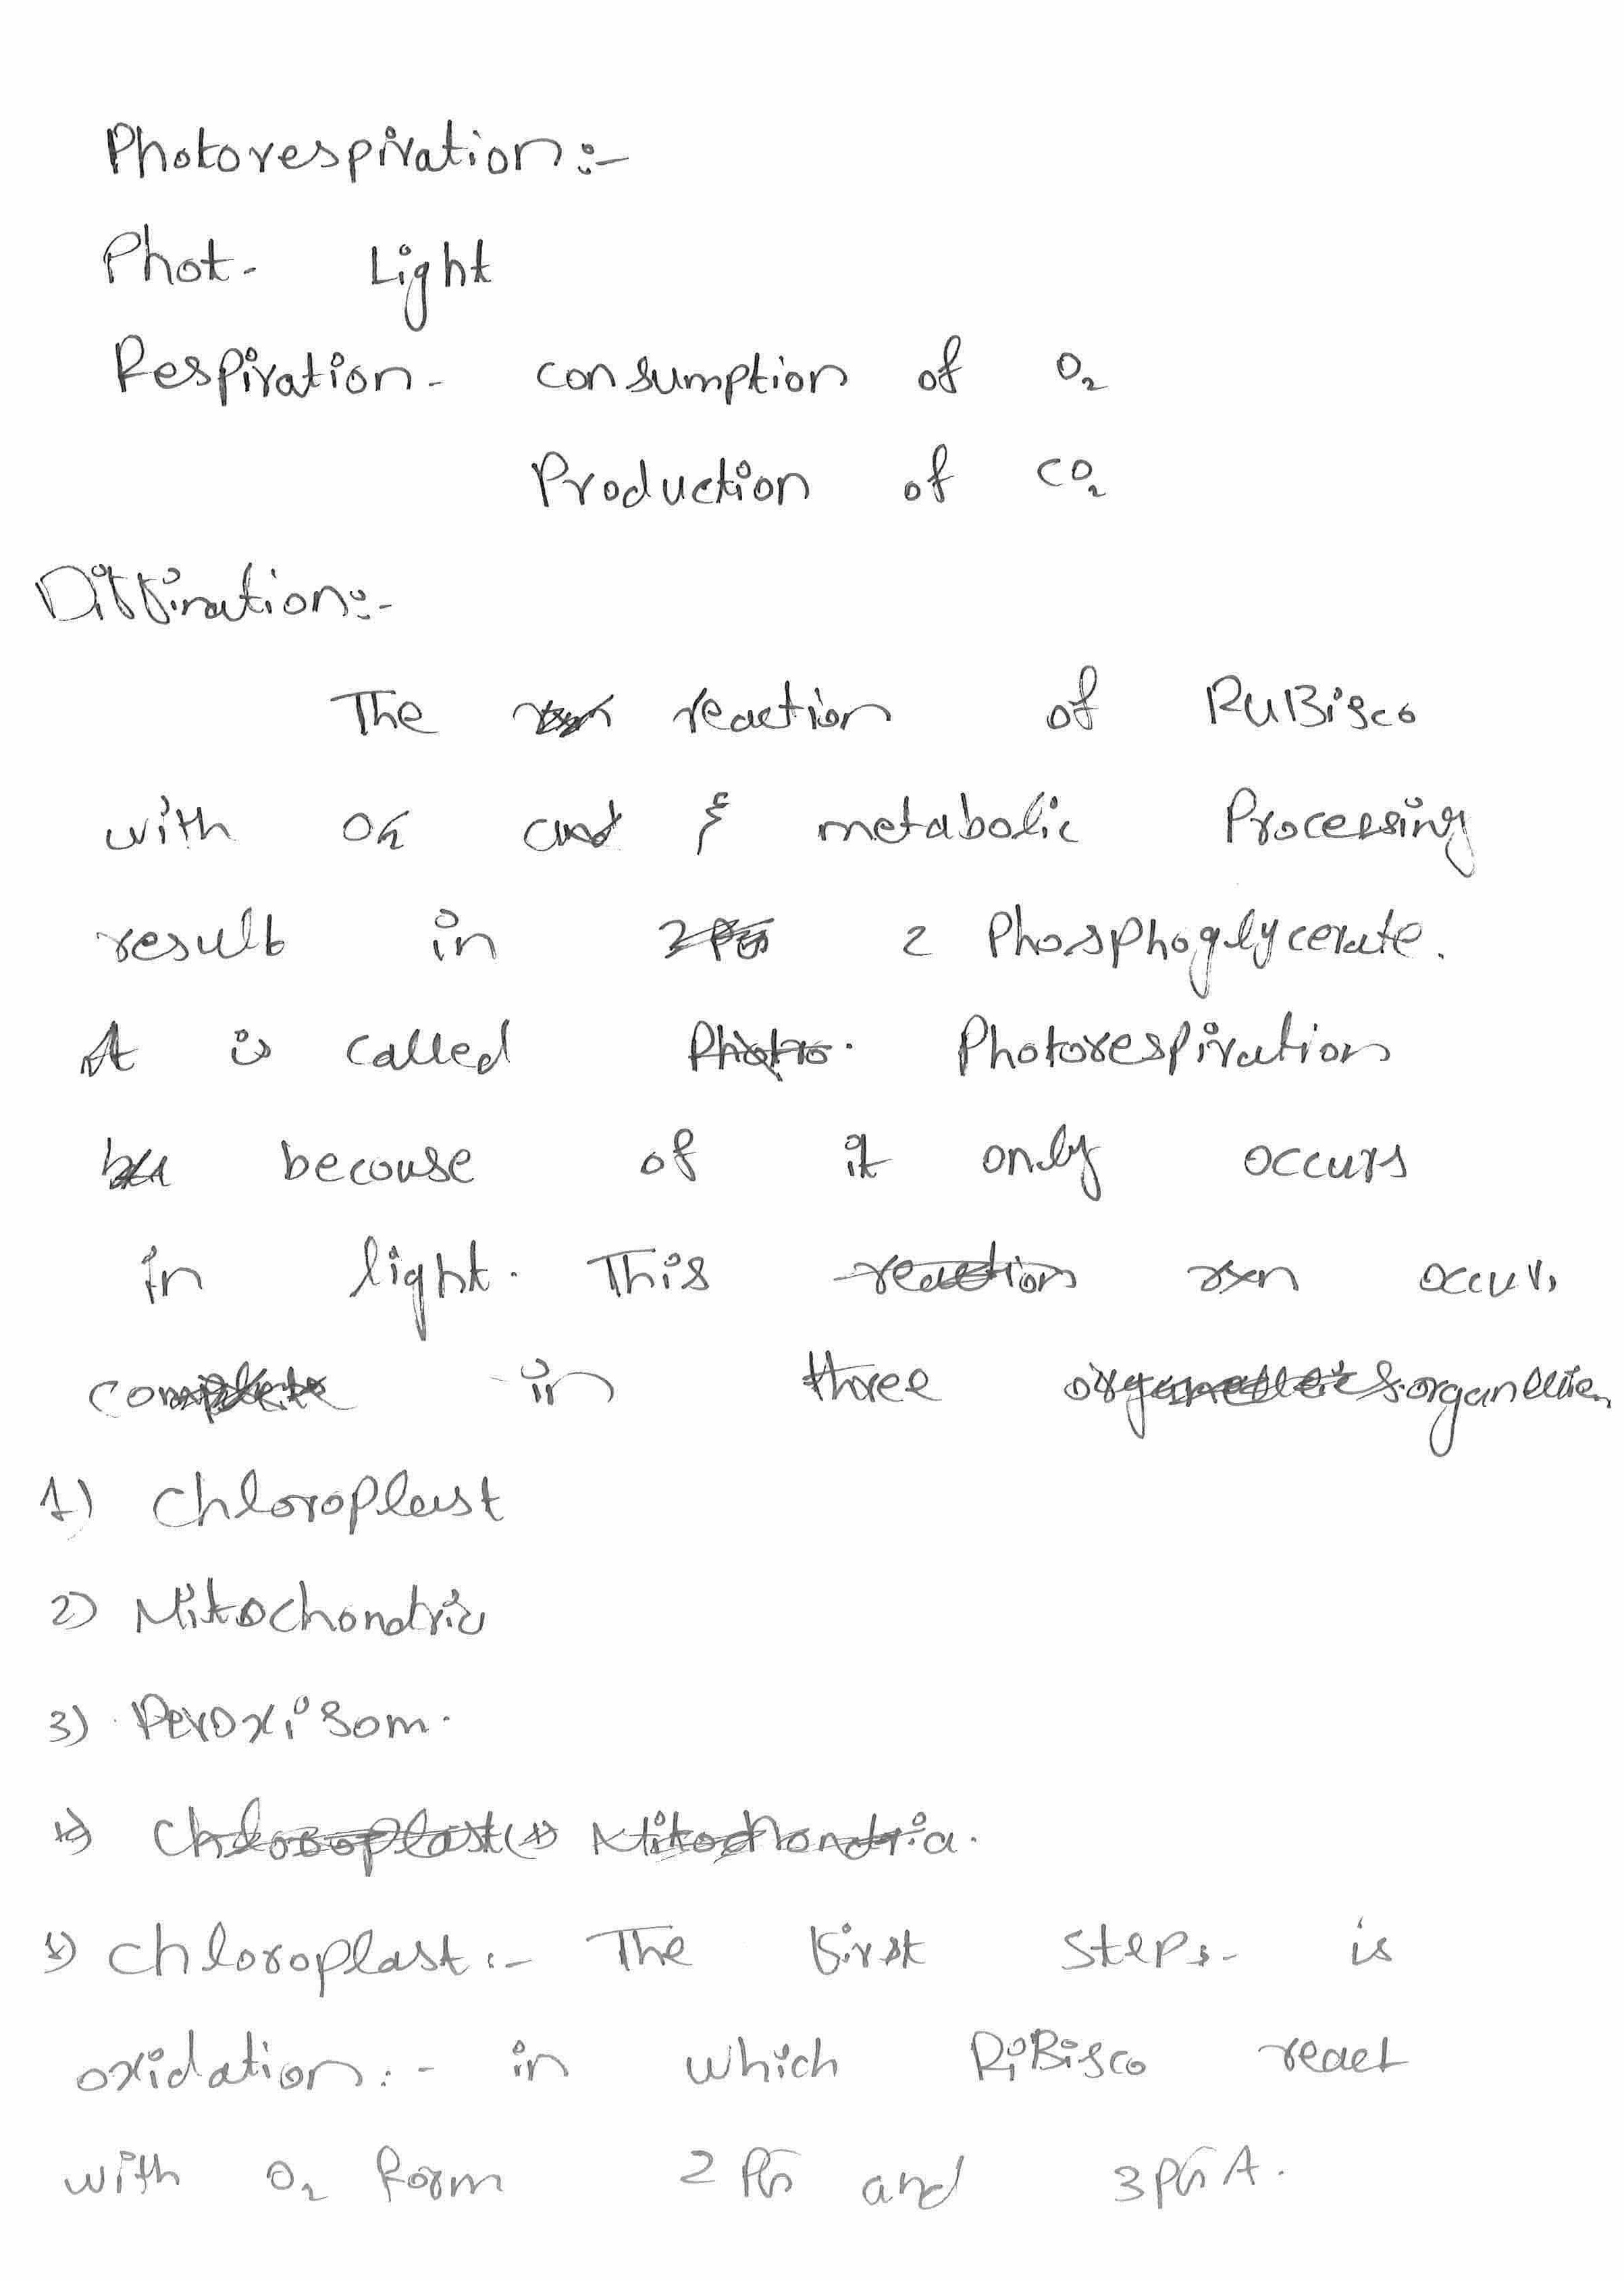 Photorespiration:-
Phot- Light
Respiration- consumption of O₂
Production of CO₂
Diffination:-
The reaction of RuBisco
with O₂ and & metabolic Processing
result in 2 Phosphoglycerate.
It is called Photo. Photorespiration
becouse of it only occurs
in light. This reaction rxn occurs
complete in three organelles
1) Chloroplast
2) Mitochondria
3) Peroxisom.
1) Chloroplast 1) Mitochondria.
1) chloroplast:- The first steps- is
oxidation:- in which RiBisco react
with O₂ form 2 PG and 3PGA.